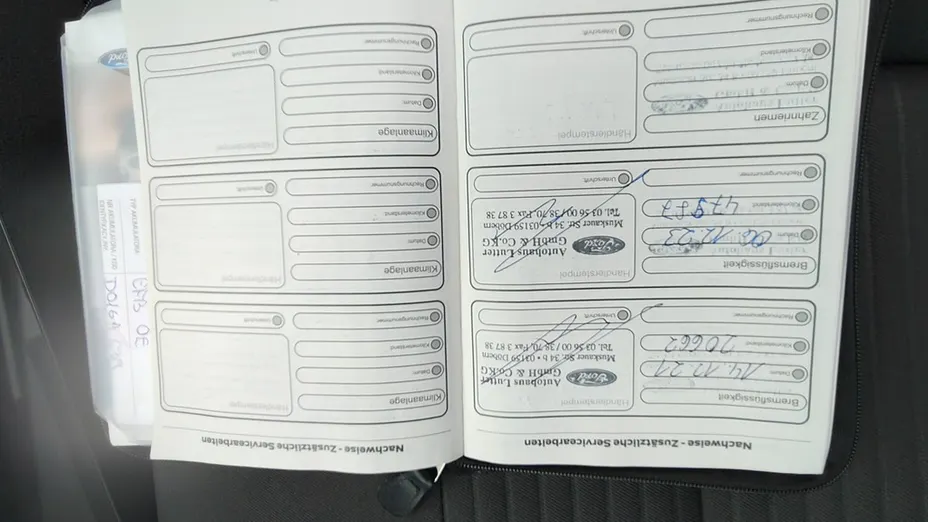 Nachweise - Zusätzliche Servicearbeiten
Bremsflüssigkeit
Datum:
14.12.21
Kilometerstand:
20662
Rechnungsnummer:
Händlerstempel
Ford
Autohaus Lutter
GmbH & Co.KG
Muskauer Str. 34 b • 03159 Döbern
Tel. 03 56 00 / 38 70, Fax 3 87 38
Unterschrift:
Bremsflüssigkeit
Datum:
06.12.23
Kilometerstand:
47987
Rechnungsnummer:
Händlerstempel
Ford
Autohaus Lutter
GmbH & Co.KG
Muskauer Str. 34 b • 03159 Döbern
Tel. 03 56 00 / 38 70, Fax 3 87 38
Unterschrift:
Zahnriemen
Datum:
Kilometerstand:
Rechnungsnummer:
Händlerstempel
Unterschrift:
Nachweise - Zusätzliche Servicearbeiten
Klimaanlage
Datum:
Kilometerstand:
Rechnungsnummer:
Händlerstempel
Unterschrift:
Klimaanlage
Datum:
Kilometerstand:
Rechnungsnummer:
Händlerstempel
Unterschrift:
Klimaanlage
Datum:
Kilometerstand:
Rechnungsnummer:
Händlerstempel
Unterschrift:
Ford